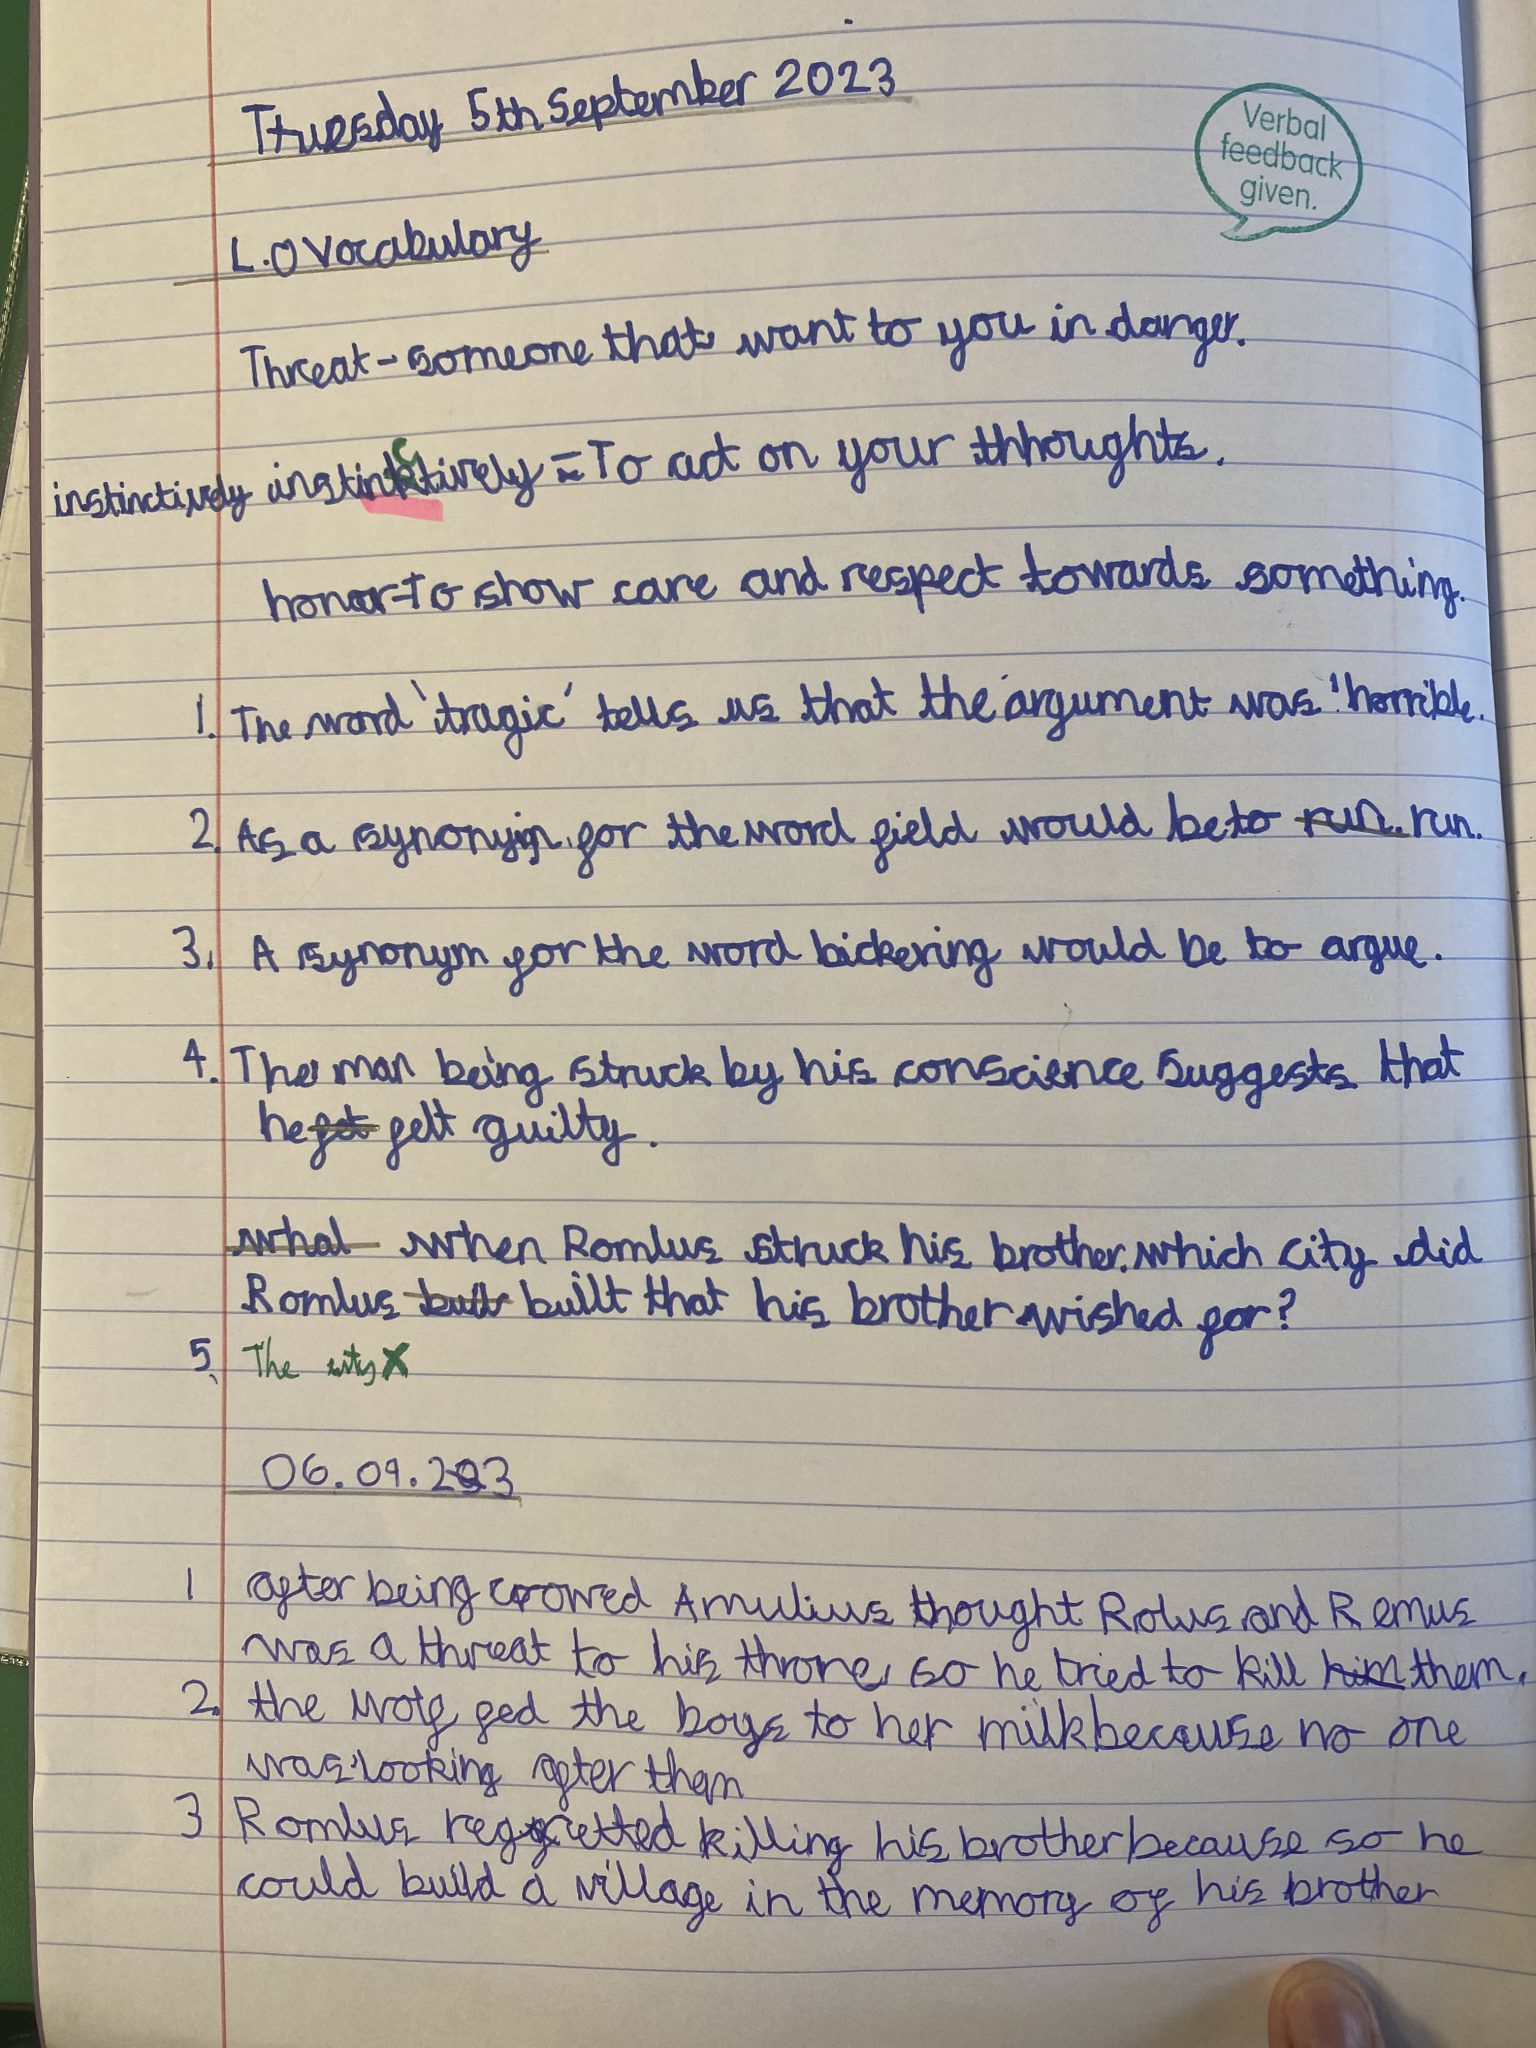 Tuesday 5th September 2023
Verbal
feedback
given.
L.O Vocabulary
Threat - someone that want to you in danger.
instinctively instinctively = To act on your thhoughts.
honor - To show care and respect towards something.
1. The word 'tragic' tells us that the argument was 'horrible.
2. As a synonym for the word field would be to run. run.
3. A synonym for the word bickering would be to argue.
4. The man being struck by his conscience suggests that
he fet felt guilty.
what when Romlus struck his brother. which city did
Romlus built built that his brother wished for?
5. The city X
06.09.23
1 after being crowed Amulius thought Rolus and Remus
was a threat to his throne, so he tried to kill him them.
2. the wolf fed the boys to her milk because no one
was looking after them
3 Romlus reggretted killing his brother because so he
could build a village in the memory of his brother